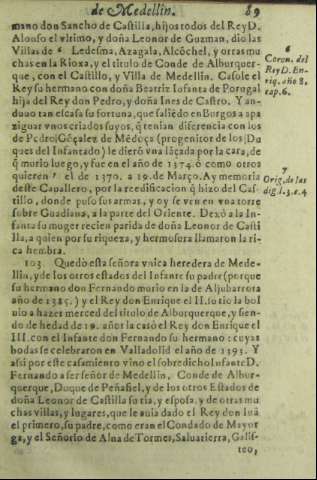 de Medellin. 89
mano don Sancho de Castilla, hijos todos del Rey D.
Alonso el vltimo, y doña Leonor de Guzman, dio las
Villas de 6 Ledesma, Azagala, Alcõchel, y otras mu
chas en la Rioxa, y el titulo de Conde de Alburquer-
que, con el Castillo, y Villa de Medellin. Casole el
Rey su hermano con doña Beatriz Infanta de Porugal
hija del Rey don Pedro, y doña Ines de Castro. Y an-
duuo tan escasa su fortuna, que saliẽdo en Burgos a apa
ziguar vnos criados suyos, q̃ tenian diferencia con los
de Pedro Gõçalez de Mẽdoça (progenitor de los Du
ques del Infantado) le dierõ vna lãçada por la cara, de
q̃ murio luego, y fue en el año de 1374. ó como otros
quieren 7 el de 1370. a 19. de Março. Ay memoria
deste Capallero, por la reedificacion q̃ hizo del Cas-
tillo, donde puso sus armas, y oy se ven en vna torre
sobre Guadiana, a la parte del Oriente. Dexó a la In-
fanta su muger recien parida de doña Leonor de Casti
lla, a quien por su riqueza, y hermosura llamaron la ri-
ca hembra.
103 Quedo esta señora vnica heredera de Mede-
llin, y de los otros estados del Infante su padre (porque
su hermano don Fernando murio en la de Aljubarrota
año de 1385.) y el Rey don Enrique el II. su tio la bol
uio a hazer merced del titulo de Alburquerque, y sien-
do de hedad de 19. años la casó el Rey don Enrique el
III. con el Infante don Fernando su hermano: cuyas
bodas se celebraron en Valladolid el año de 1393. Y
assi por este casamiento vino el sobredicho Infante D.
Fernando a ser señor de Medellin, Conde de Albur-
querque, Duque de Peñafiel, y de los otros Estados de
doña Leonor de Castilla su tia, y esposa, y de otras mu
chas villas, y lugares, que le auia dado el Rey don Iuã
el primero, su padre, como eran el Condado de Mayor
ga, y el Señorio de Alua de Tormes, Saluatierra, Galis-
teo,
6
Coron. del
Rey D. En-
riq. año 8.
cap. 6.
7
Orig. de las
dig. l. 3. c. 4